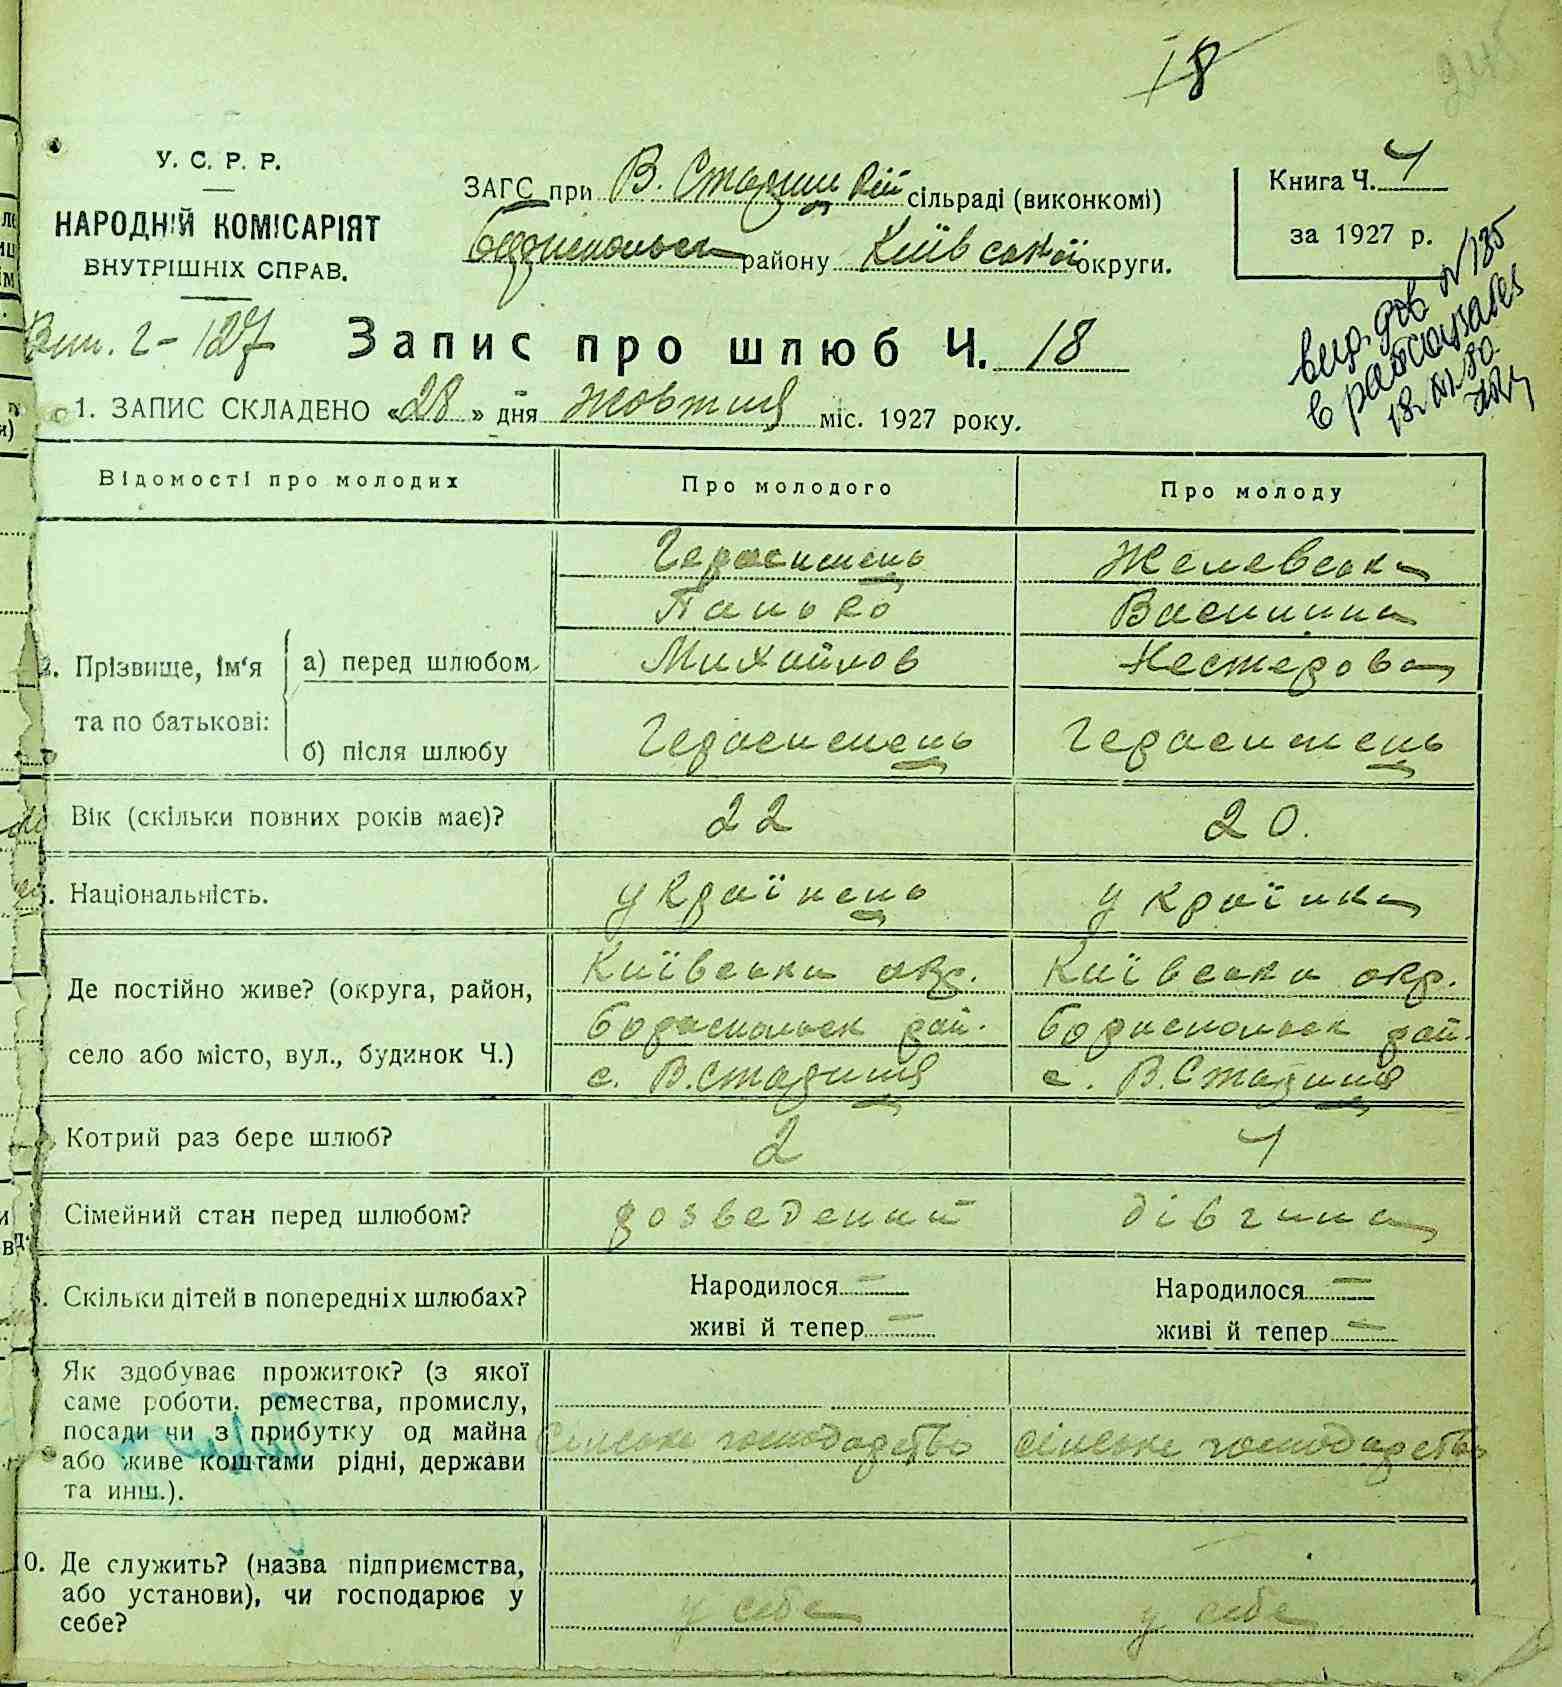 18
245
У. С. Р. Р.
НАРОДНІЙ КОМІСАРІЯТ
ВНУТРІШНІХ СПРАВ.
ЗАГС при В. Стариц кій сільраді (виконкомі)
Бориспольськ району Київської округи.
Книга Ч. 1
за 1927 р.
вид. дов N 135
18
Запис про шлюб Ч. 18
1. ЗАПИС СКЛАДЕНО «28» дня жовтня міс. 1927 року.
Відомості про молодих
Про молодого
Про молоду
2. Прізвище, ім'я та по батькові:
а) перед шлюбом
Герасимець
Панько
Михайлов
Желевська
Василина
Нестерова
б) після шлюбу
Герасимець
Герасимець
Вік (скільки повних років має)?
22
20.
Національність.
українець
українка
Де постійно живе? (округа, район,
село або місто, вул., будинок Ч.)
Київська окр.
Бориспольськ рай.
с. В. Стариця
Київська окр.
Бориспольськ рай.
с. В. Стариця
Котрий раз бере шлюб?
2
1
Сімейний стан перед шлюбом?
розведений
дівчина
Скільки дітей в попередніх шлюбах?
Народилося –
живі й тепер –
Народилося –
живі й тепер –
Як здобуває прожиток? (з якої
саме роботи, ремества, промислу,
посади чи з прибутку од майна
або живе коштами рідні, держави
та инш.).
сільське господарство
сільське господарство
10. Де служить? (назва підприємства,
або установи), чи господарює у
себе?
у себе
у себе